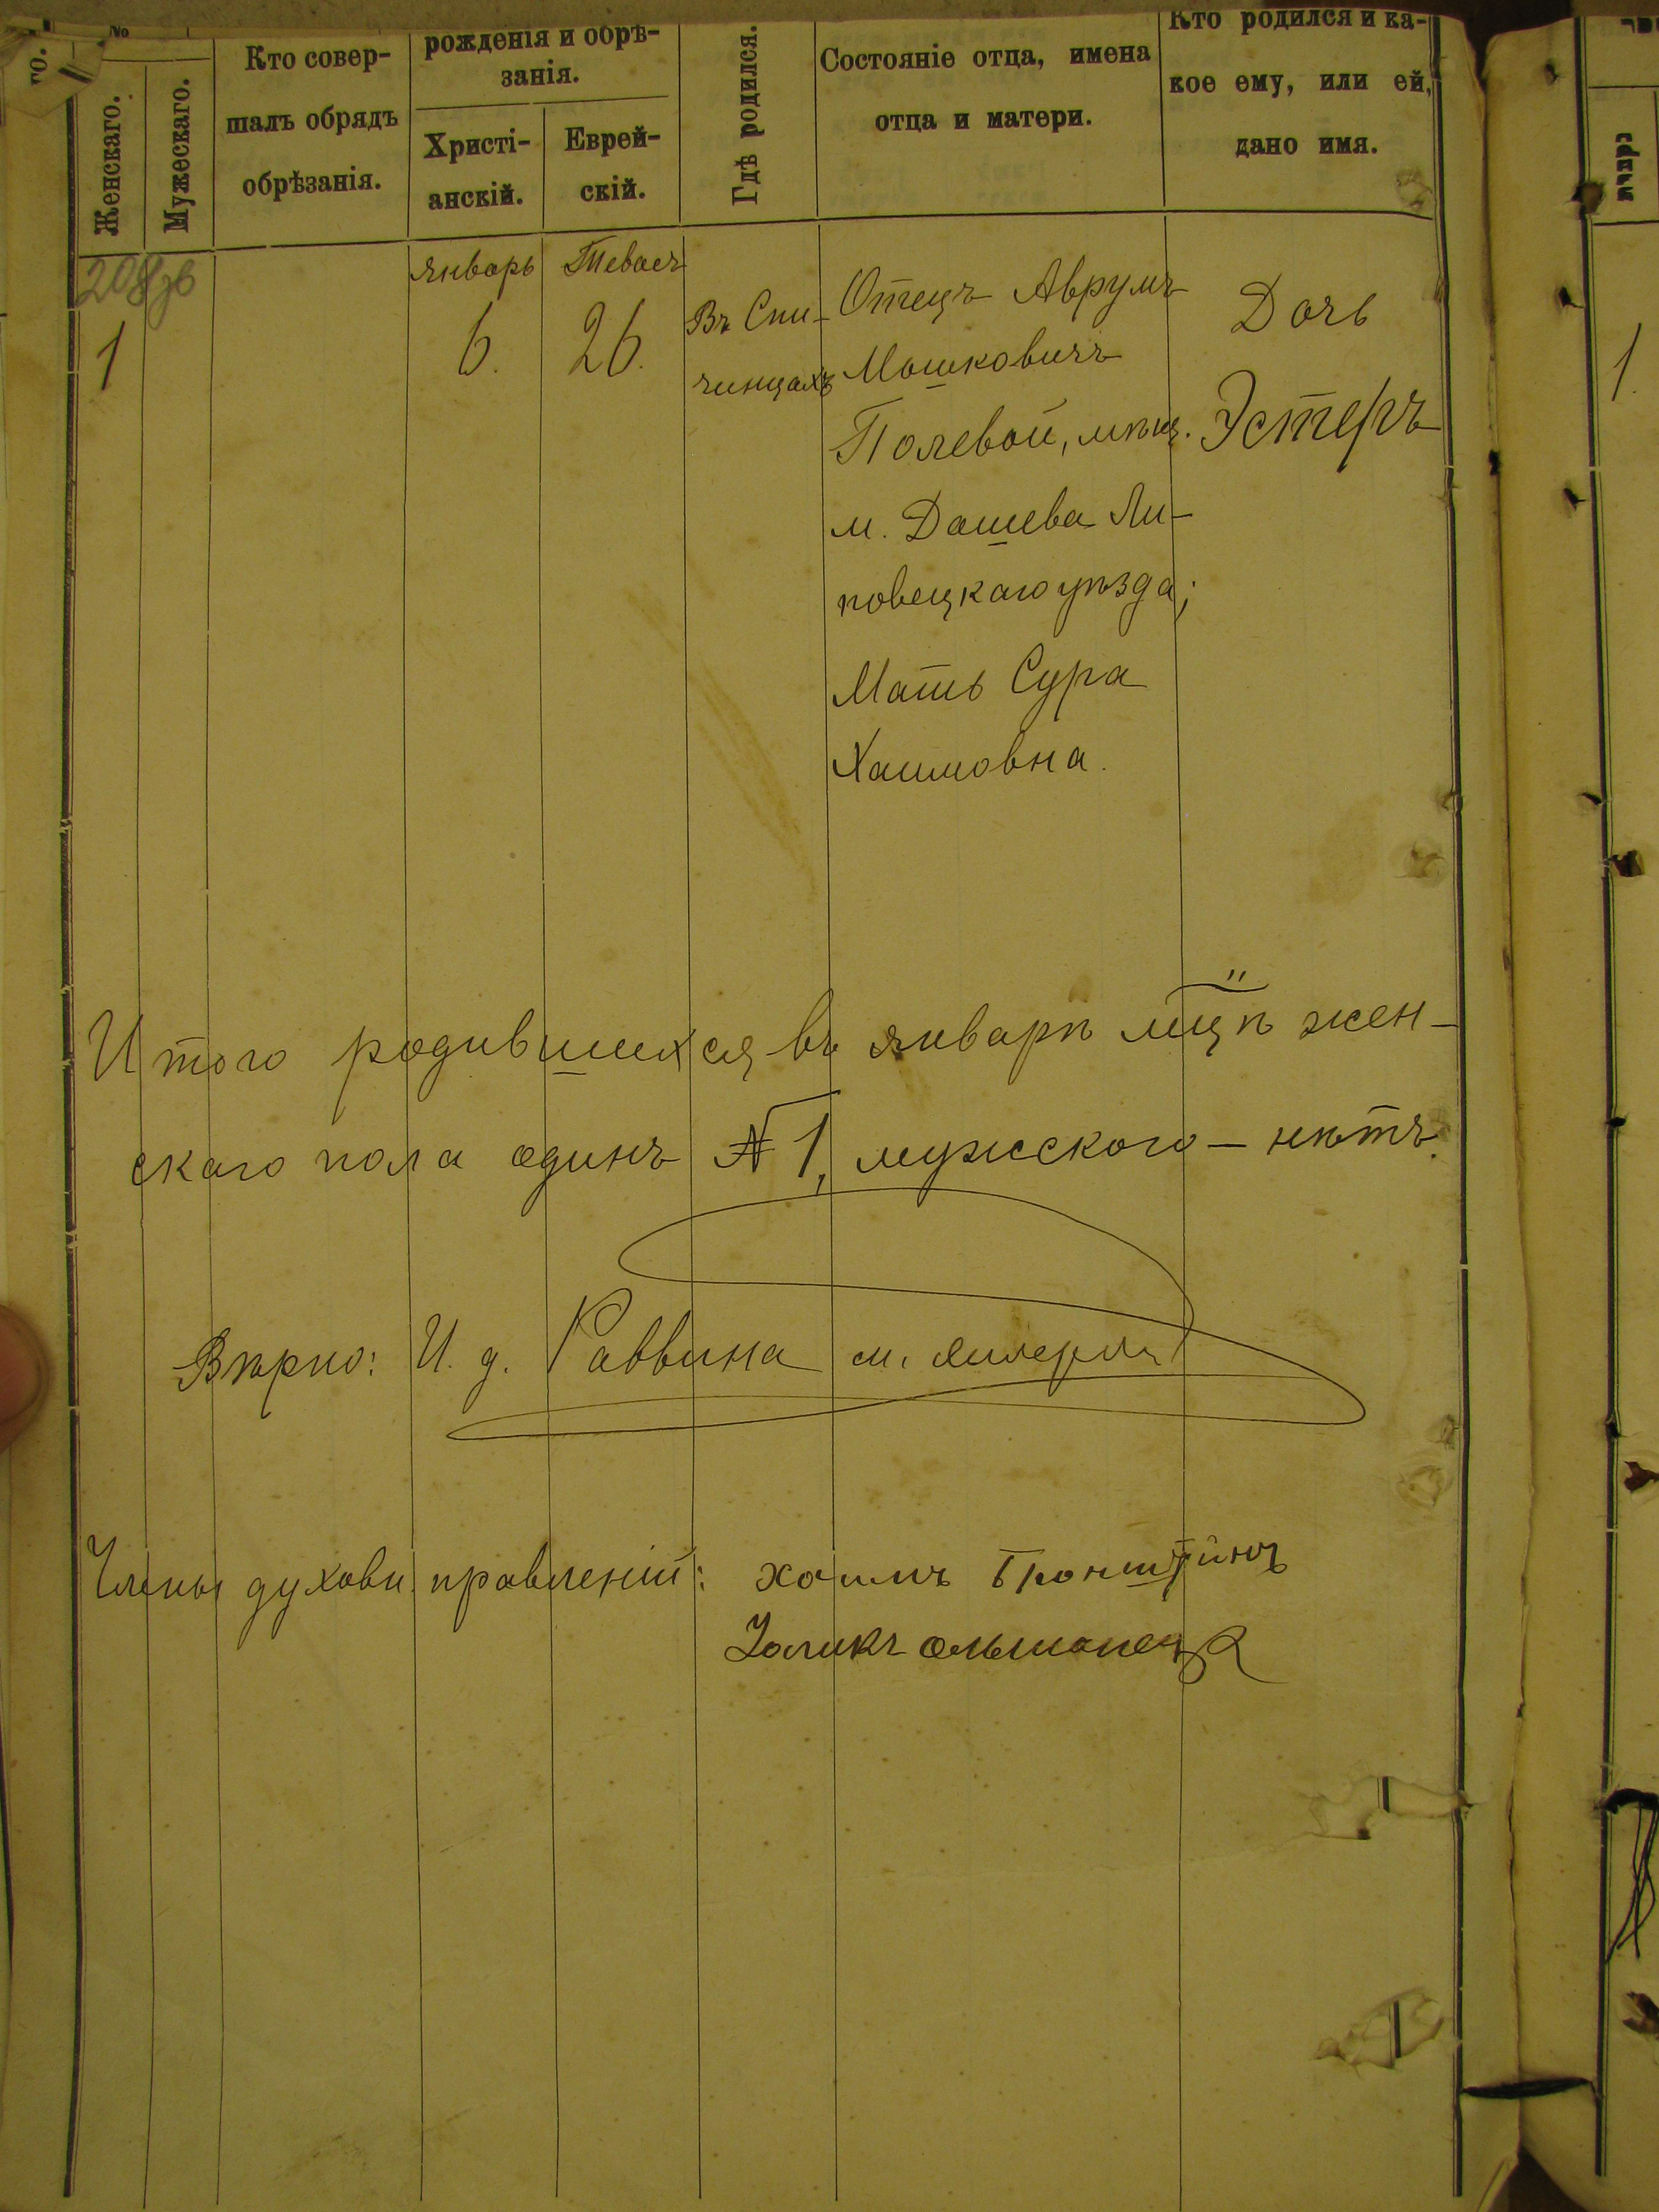 №
Женскаго.
Мужескаго.
Кто совер-
шалъ обрядъ
обрѣзанія.
рожденія и обрѣ-
занія.
Христі-
анскій.
Еврей-
скій.
Гдѣ родился.
Состояніе отца, имена
отца и матери.
Кто родился и ка-
кое ему, или ей,
дано имя.
Январь
Тевасъ
1
6.
26.
Въ Спи-
чинцахъ
Отецъ Аврумъ
Мошковичъ
Полевой, мѣщ.
м. Дашева Ли-
повецкаго уѣзда;
Мать Сура
Хаимовна.
Дочь
Эстеръ
1.
Итого родившихся въ январѣ мцѣ жен-
скаго пола одинъ № 1, мужскаго - нѣтъ.
Вѣрно: И. д. Раввина
Члены духовн. правленій: Хаимъ Бронштейнъ